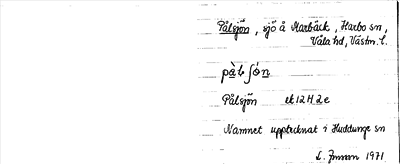 Pålsjön, sjö å Marbäck, Harbo sn,
Våla hd, Västm. l.
pàlʃón
Pålsjön ek 12 H 2 e
Namnet upptecknat i Huddunge sn
1971